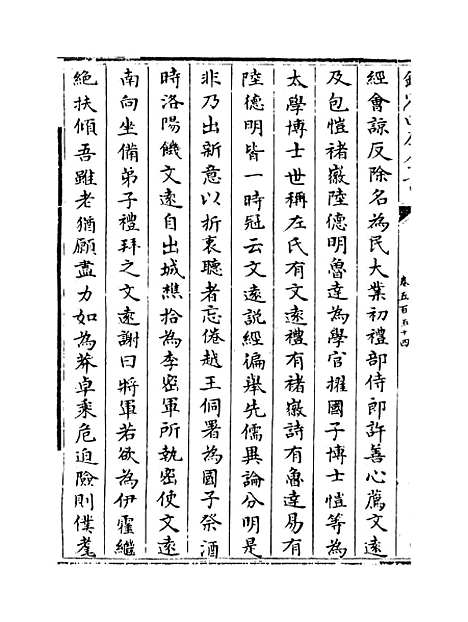 欽定四庫全書
卷五百五十四
經會諒反除名為民大業初禮部侍郎許善心薦文遠
及包愷褚徽陸德明魯達為學官擢國子博士愷等為
太學博士世稱左氏有文遠禮有褚徽詩有魯達易有
陸德明皆一時冠云文遠說經徧舉先儒異論分明是
非乃出新意以折衷聽者忘倦越王侗署為國子祭酒
時洛陽饑文遠自出城樵拾為李密軍所執密使文遠
南向坐備弟子禮拜之文遠謝曰將軍若欲為伊霍繼
絕扶傾吾雖老猶願盡力如為莽卓乘危迫險則僕耄